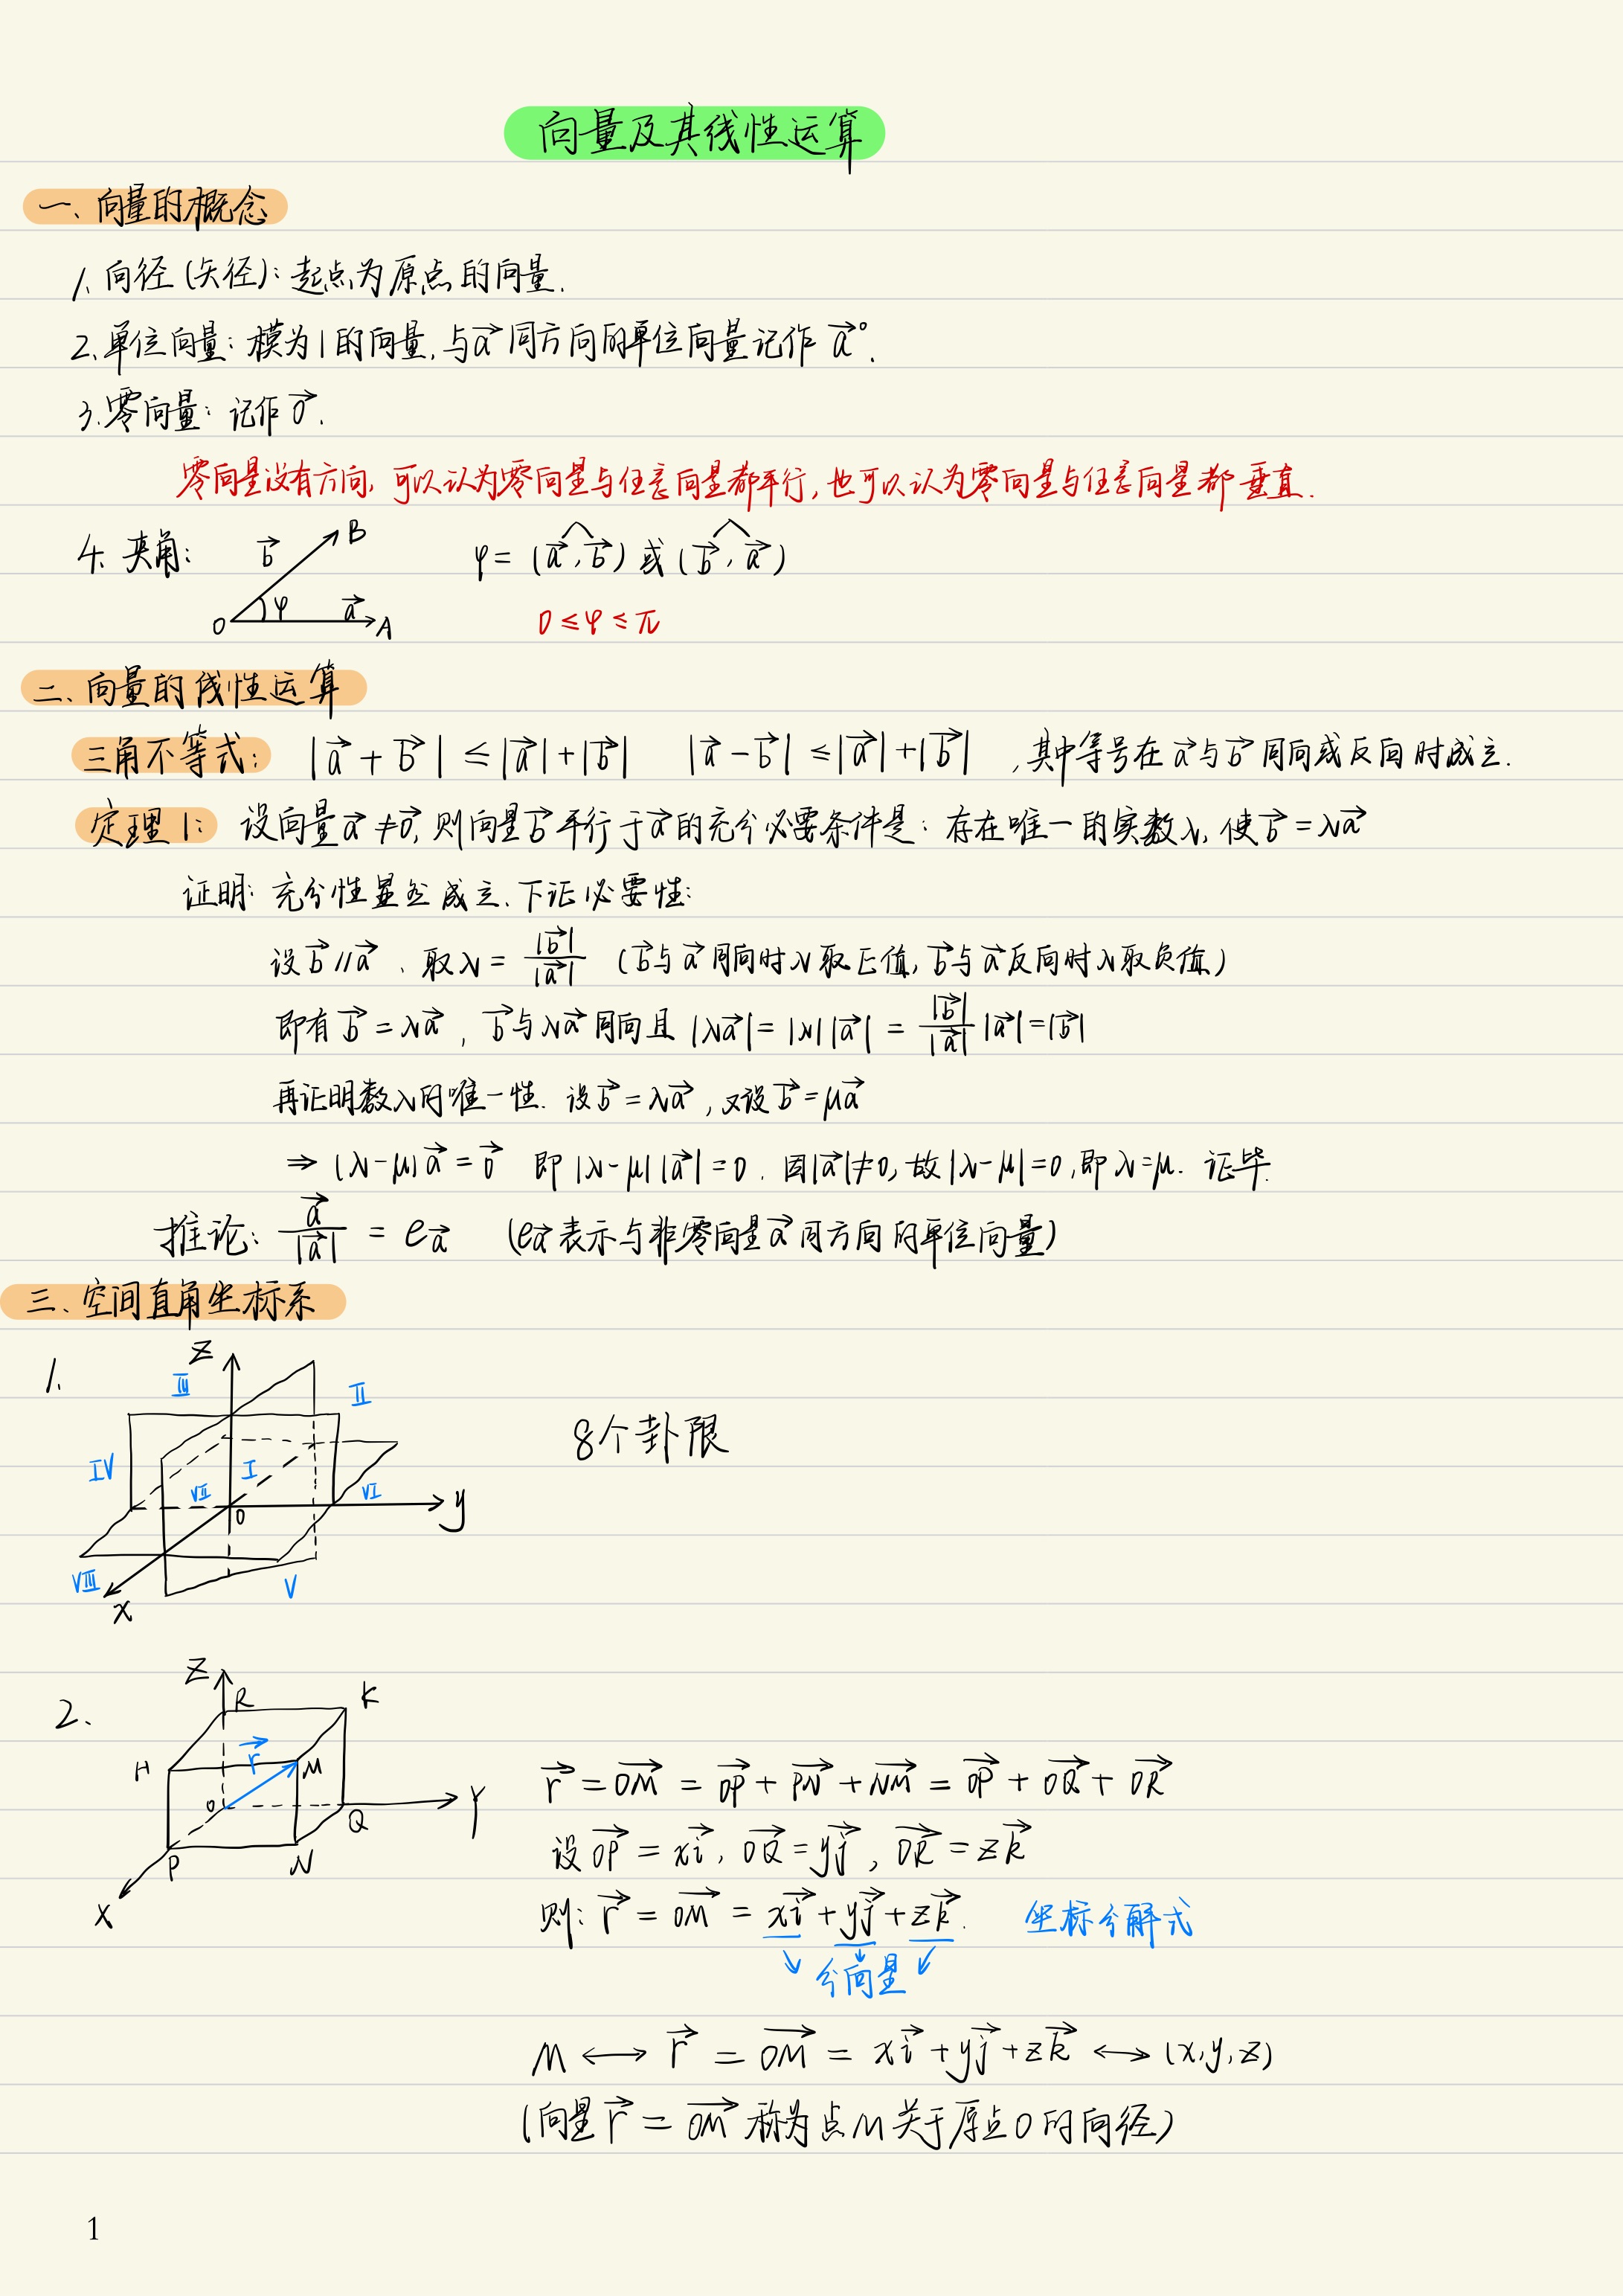 向量及其线性运算
一、向量的概念
1. 向径 (矢径): 起点为原点的向量.
2. 单位向量: 模为1的向量, 与a⃗同方向的单位向量记作 a⃗°.
3. 零向量: 记作 0⃗.
零向量没有方向, 可以认为零向量与任意向量都平行, 也可以认为零向量与任意向量都垂直.
4. 夹角: b⃗ B O φ a⃗ A φ = (a⃗, b⃗) 或 (b⃗, a⃗)
0 ≤ φ ≤ π
二、向量的线性运算
三角不等式: |a⃗ + b⃗| ≤ |a⃗| + |b⃗| |a⃗ - b⃗| ≤ |a⃗| + |b⃗| , 其中等号在 a⃗ 与 b⃗ 同向或反向时成立.
定理1: 设向量 a⃗ ≠ 0⃗, 则向量 b⃗ 平行于 a⃗ 的充分必要条件是: 存在唯一的实数λ, 使 b⃗ = λa⃗
证明: 充分性显然成立、下证必要性:
设 b⃗ // a⃗ 、取 λ = |b⃗|/|a⃗| (b⃗与a⃗同向时λ取正值, b⃗与a⃗反向时λ取负值)
即有 b⃗ = λa⃗ , b⃗与λa⃗同向且 |λa⃗| = |λ||a⃗| = |b⃗|/|a⃗| |a⃗| = |b⃗|
再证明数λ的唯一性. 设 b⃗ = λa⃗ , 又设 b⃗ = μa⃗
⇒ (λ-μ)a⃗ = 0⃗ 即 |λ-μ||a⃗| = 0. 因|a⃗|≠0, 故|λ-μ|=0, 即λ=μ. 证毕.
推论: a⃗/|a⃗| = e_a⃗ (e_a⃗ 表示与非零向量a⃗同方向的单位向量)
三、空间直角坐标系
1.
z
Ⅲ Ⅱ
8个卦限
Ⅳ Ⅰ
Ⅶ Ⅵ
O y
Ⅷ Ⅴ
x
2.
z R K
H r⃗ M
O Q Y
P N
X
r⃗ = OM⃗ = OP⃗ + PN⃗ + NM⃗ = OP⃗ + OQ⃗ + OR⃗
设 OP⃗ = xi⃗, OQ⃗ = yj⃗, OR⃗ = zk⃗
则: r⃗ = OM⃗ = xi⃗ + yj⃗ + zk⃗. 坐标分解式
↘ ↓ ↙
分向量
M ⟷ r⃗ = OM⃗ = xi⃗ + yj⃗ + zk⃗ ⟷ (x, y, z)
(向量 r⃗ = OM⃗ 称为点M关于原点O的向径)
1